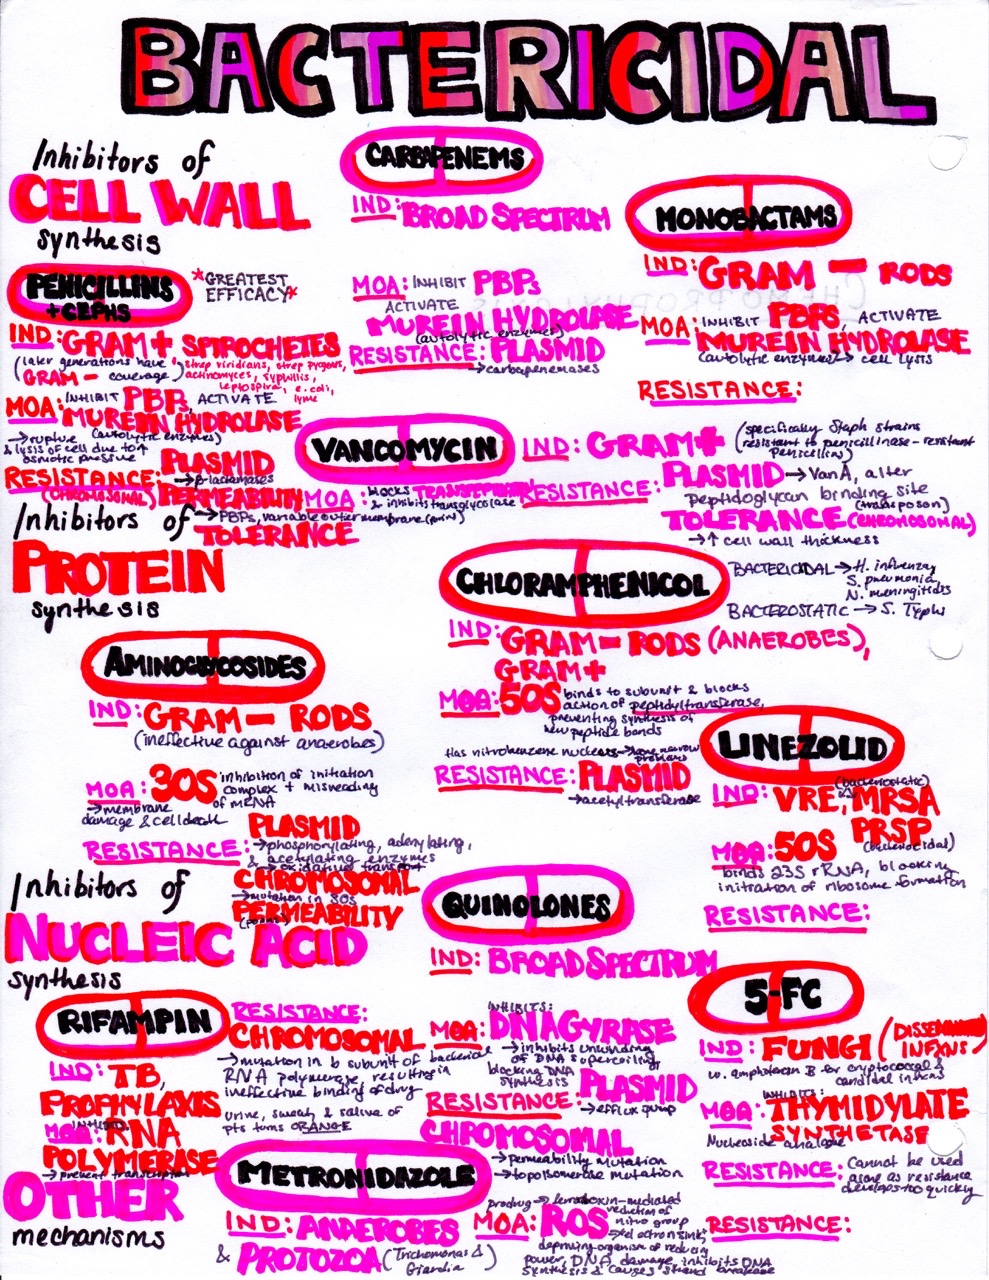 BACTERICIDAL
Inhibitors of
CELL WALL
synthesis
CARBAPENEMS
IND: BROAD SPECTRUM
MOA: INHIBIT PBPs
ACTIVATE
MUREIN HYDROLASE
(autolytic enzymes)
RESISTANCE: PLASMID
→carbapenemases
MONOBACTAMS
IND: GRAM - RODS
MOA: INHIBIT PBPS, ACTIVATE
MUREIN HYDROLASE
(autolytic enzymes)→ cell lysis
RESISTANCE:
PENICILLINS
+ CEPHS
*GREATEST
EFFICACY*
IND: GRAM + SPIROCHETES
(later generations have
GRAM - coverage)
strep viridians, strep pyogenes,
actinomyces, syphillis,
leptospira, e.coli,
lyme
MOA: INHIBIT PBPs, ACTIVATE
MUREIN HYDROLASE
(autolytic enzymes)
→rupture
& lysis of cell due to ↑
osmotic pressure
RESISTANCE: PLASMID
→β-lactamases
(CHROMOSOMAL) PERMEABILITY
→PBPs, variable outer membrane (porin)
TOLERANCE
VANCOMYCIN
IND: GRAM+
(specifically Staph strains
resistant to penicillinase-resistant
penicillins)
MOA: blocks
& inhibits transglycolase
RESISTANCE: PLASMID → VanA, alter
peptidoglycan binding site
(transposon)
TOLERANCE (CHROMOSOMAL)
→↑ cell wall thickness
Inhibitors of
PROTEIN
synthesis
CHLORAMPHENICOL
BACTERICIDAL → H. influenza
S. pneumonia,
N. meningitides
BACTEROSTATIC → S. Typhi
IND: GRAM - RODS (ANAEROBES),
GRAM+
MOA: 50S binds to subunit & blocks
action of peptidyltransferase,
preventing synthesis of
new peptide bonds
Has nitrobenzene nucleus→ bone marrow
problems
RESISTANCE: PLASMID
→acetyltransferase
AMINOGLYCOSIDES
IND: GRAM - RODS
(ineffective against anaerobes)
MOA: 30S inhibition of initiation
complex + misreading
of mRNA
→membrane
damage & cell death
RESISTANCE: PLASMID
→phosphorylating, adenylating,
& acetylating enzymes
→oxidative transport
CHROMOSOMAL
→mutation in 30S
PERMEABILITY
(porins)
LINEZOLID
(bacteriostatic)
IND: VRE, MRSA
PRSP
(bactericidal)
MOA: 50S
binds 23S rRNA, blocking
initiation of ribosome formation
RESISTANCE:
Inhibitors of
NUCLEIC ACID
synthesis
QUINOLONES
IND: BROAD SPECTRUM
INHIBITS:
MOA: DNA GYRASE
→inhibits unwinding
of DNA supercoiling,
blocking DNA
synthesis
RESISTANCE: PLASMID
→efflux pump
CHROMOSOMAL
→permeability mutation
→topoisomerase mutation
RIFAMPIN
IND: TB,
PROPHYLAXIS
MOA: INHIBITS RNA
POLYMERASE
→prevent transcription
RESISTANCE:
CHROMOSOMAL
→mutation in b subunit of bacterial
RNA polymerase, resulting in
ineffective binding of drug
urine, sweat, & saliva of
pts turns ORANGE
5-FC
IND: FUNGI (DISSEMINATED
INFXNS)
w. amphoterocin B for cryptococcal &
candidal infxns
INHIBITS:
MOA: THYMIDYLATE
SYNTHETASE
Nucleoside analogue
RESISTANCE: Cannot be used
alone as resistance
develops too quickly
OTHER
mechanisms
METRONIDAZOLE
IND: ANAEROBES
& PROTOZOA (Trichomonas &
Giardia)
prodrug → ferredoxin-mediated
reduction of
nitro group
MOA: ROS
→electron sink,
depriving organism of reducing
power, DNA damage, inhibits DNA
synthesis & causes strand breakage
RESISTANCE: